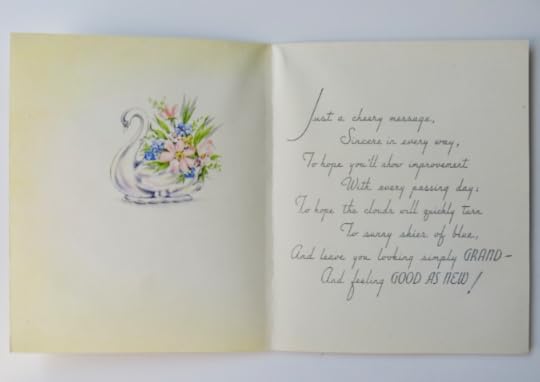 Just a cheery message,
Sincere in every way,
To hope you'll show improvement
With every passing day;
To hope the clouds will quickly turn
To sunny skies of blue,
And leave you looking simply GRAND—
And feeling GOOD AS NEW!